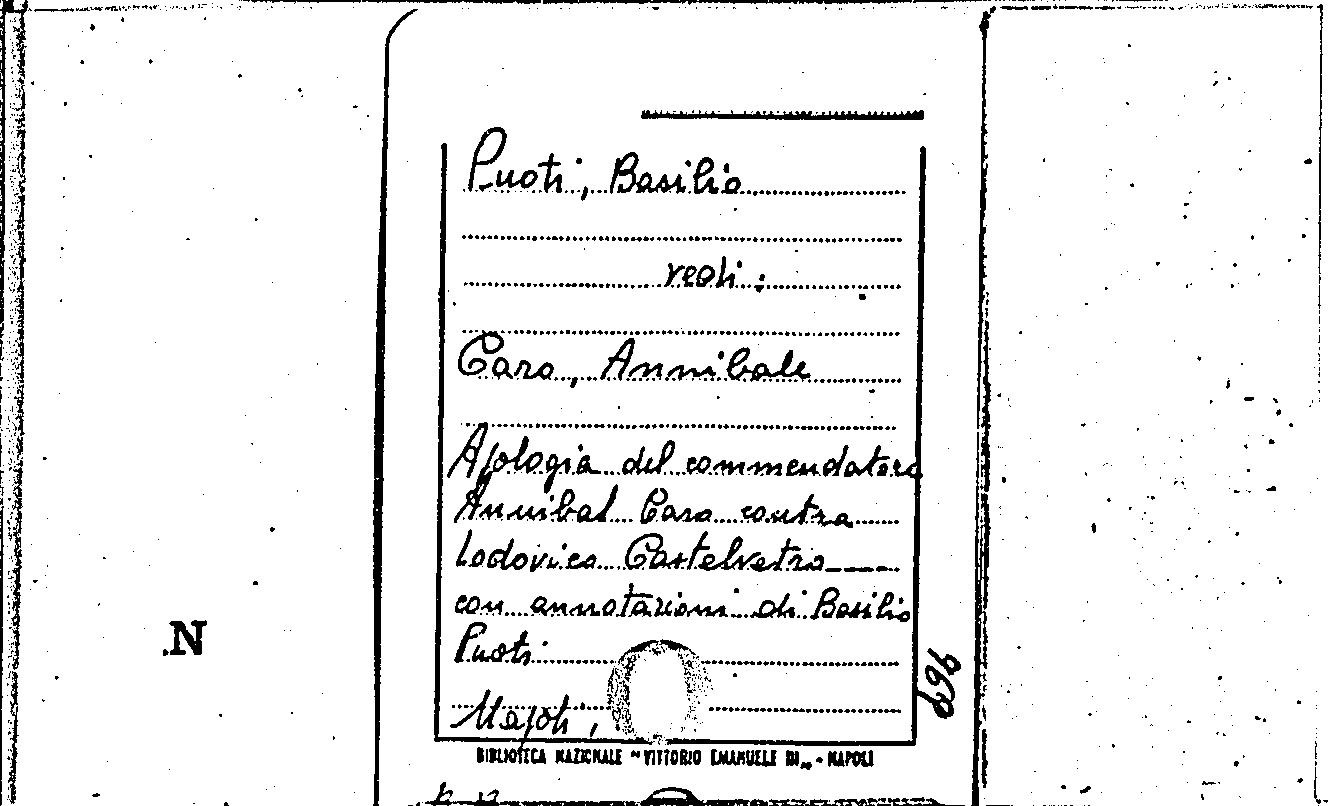 Puoti, Basilio
vedi:
Caro, Annibale
Apologia del commendatore
Annibal Caro contra
Lodovico Castelvetro
con annotazioni di Basilio
Puoti
Napoli,
969
.N
BIBLIOTECA NAZIONALE "VITTORIO EMANUELE III„ - NAPOLI